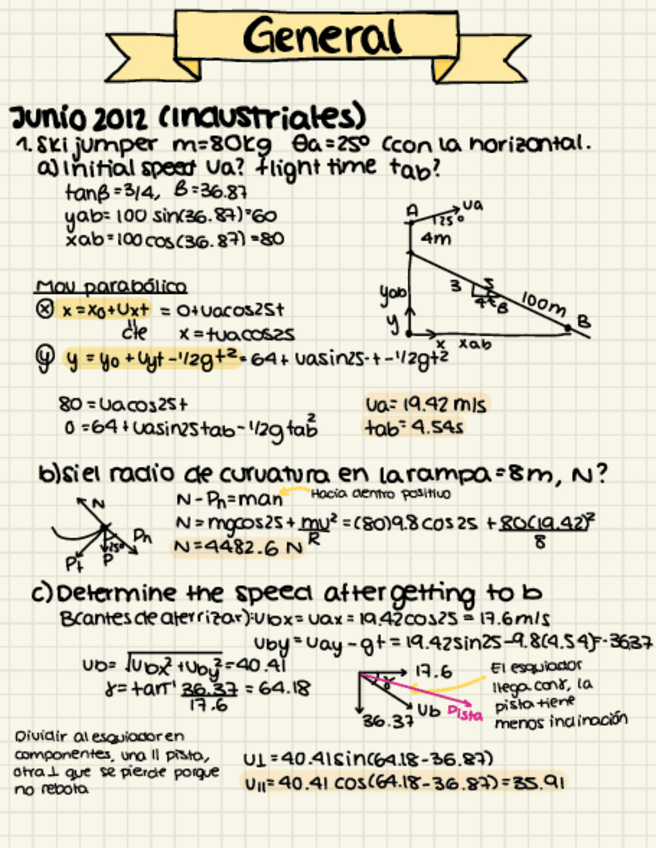 General
Junio 2012 (Industriales)
1. Ski jumper m=80kg θa=25º (con la horizontal.
a) Initial speed Va? flight time tab?
tanβ=3/4, β=36.87
yab= 100 sin(36.87)=60
xab=100cos(36.87)=80
A
Va
25º
4m
3
5
4
β
100m
B
yab
y
x xab
Mov parabólico
ⓧ x=x₀+Vxt = 0+vacos25t
cte x=tvacos25
ⓨ y=y₀+Vyt-1/2gt²=64+vasin25·t-1/2gt²
80=vacos25t
0=64+vasin25tab-1/2gtab²
Va=19.42 m/s
tab=4.54s
b) si el radio de curvatura en la rampa=8m, N?
N
Pn
25º
Pt
P
N-Pn=man
Hacia dentro positivo
N=mgcos25+mv²/R=(80)9.8cos25+80(19.42)²/8
N=4482.6 N
c) Determine the speed after getting to b
B(antes de aterrizar): Vbx=Vax=19.42cos25=17.6m/s
Vby=Vay-gt=19.42sin25-9.8(4.54)=-36.37
Vb=√Vbx²+Vby²=40.41
γ=tan⁻¹ 36.37/17.6=64.18
17.6
γ
Vb
Pista
36.37
El esquiador
llega con γ, la
pista tiene
menos inclinación
Dividir al esquiador en
componentes, una || pista,
otra ⊥ que se pierde porque
no rebota
V⊥=40.41sin(64.18-36.87)
V||=40.41 cos(64.18-36.87)=35.91